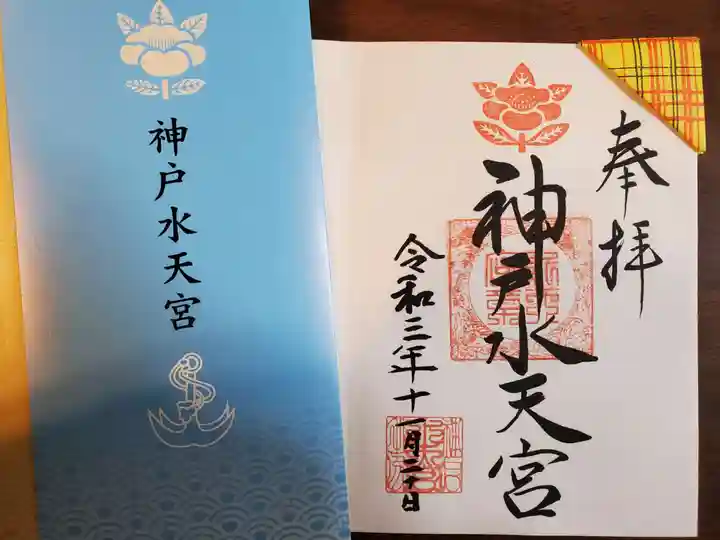 神戸水天宮
奉拝
神戸水天宮
令和三年十一月二十日